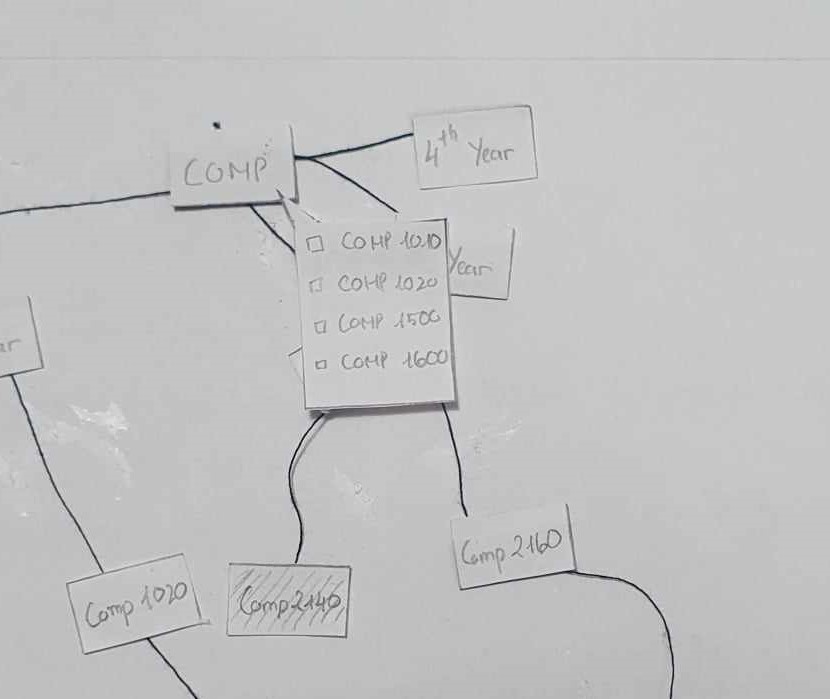 COMP
4th Year
COMP 1010
Year
COMP 1020
COMP 1500
COMP 1600
ar
Comp 2160
Comp 1020
Comp 2140